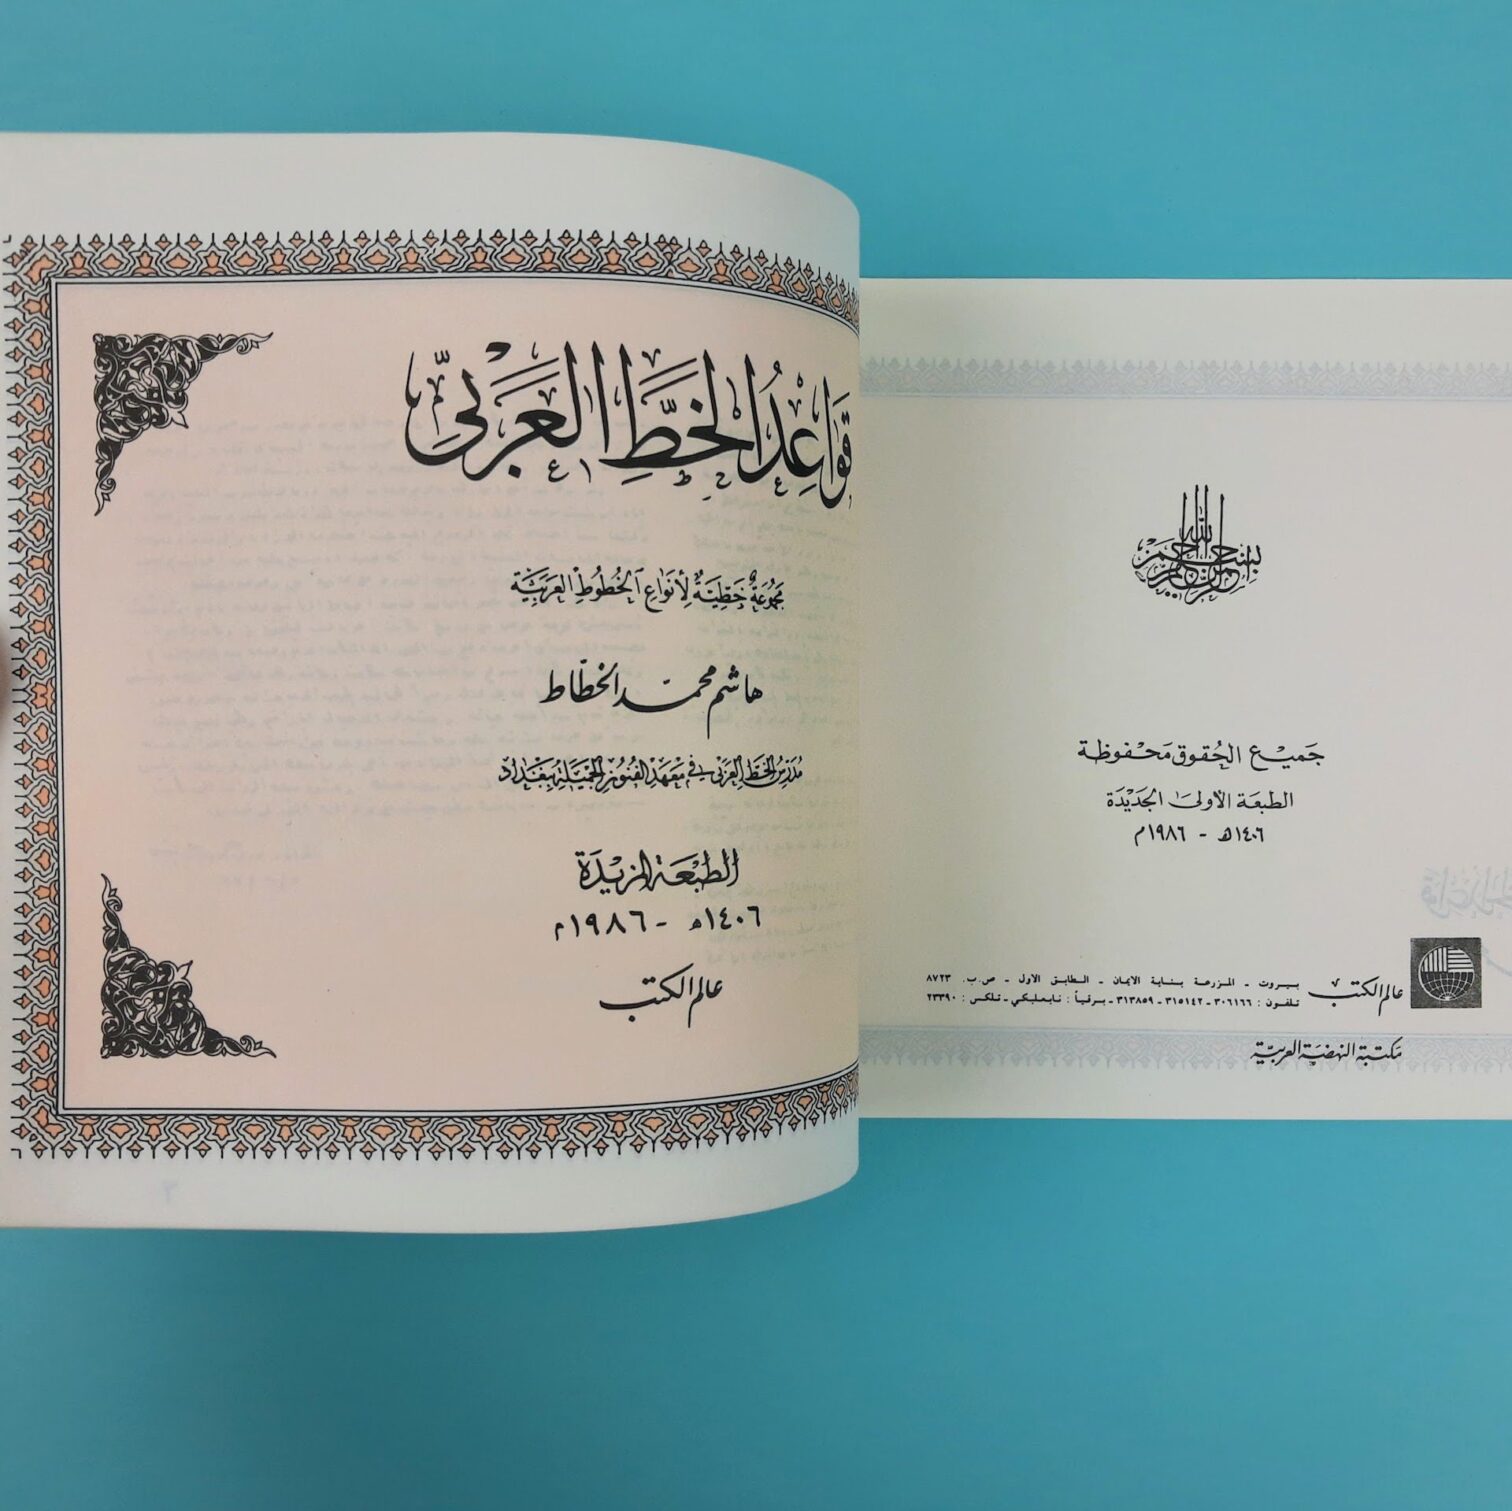 بسم الله الرحمن الرحيم
جميع الحقوق محفوظة
الطبعة الأولى الجديدة
١٤٠٦هـ - ١٩٨٦م
عالم الكتب
بيروت - المزرعة بناية الايمان - الطابق الاول - ص.ب. ٨٧٢٣
تلفون : ٣٠٦١٦٦ - ٣١٥١٤٢ - ٣١٣٨٥٩ - برقياً : نابعلبكي - تلكس : ٢٣٣٩٠
مكتبة النهضة العربية
قَوَاعِدُ الخَطِّ العَرَبيِّ
مجموعة خطية لأنواع الخطوط العربية
هاشم محمد الخطاط
مدرس الخط العربي في معهد الفنون الجميلة ببغداد
الطبعة المزيدة
١٤٠٦هـ - ١٩٨٦م
عالم الكتب